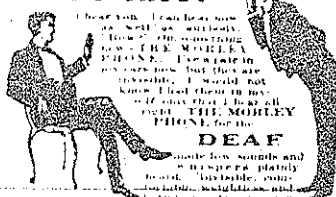 I hear you. I can hear now
as well as anybody.
"How?" Oh, something
new—THE MORLEY
PHONE. I've a pair in
my ears now, but they are
invisible. I would not
know I had them in my-
self, only that I hear all
right. THE MORLEY
PHONE for the
DEAF
makes low sounds and
whispers plainly
heard. Invisible, com-
fortable, weightless and